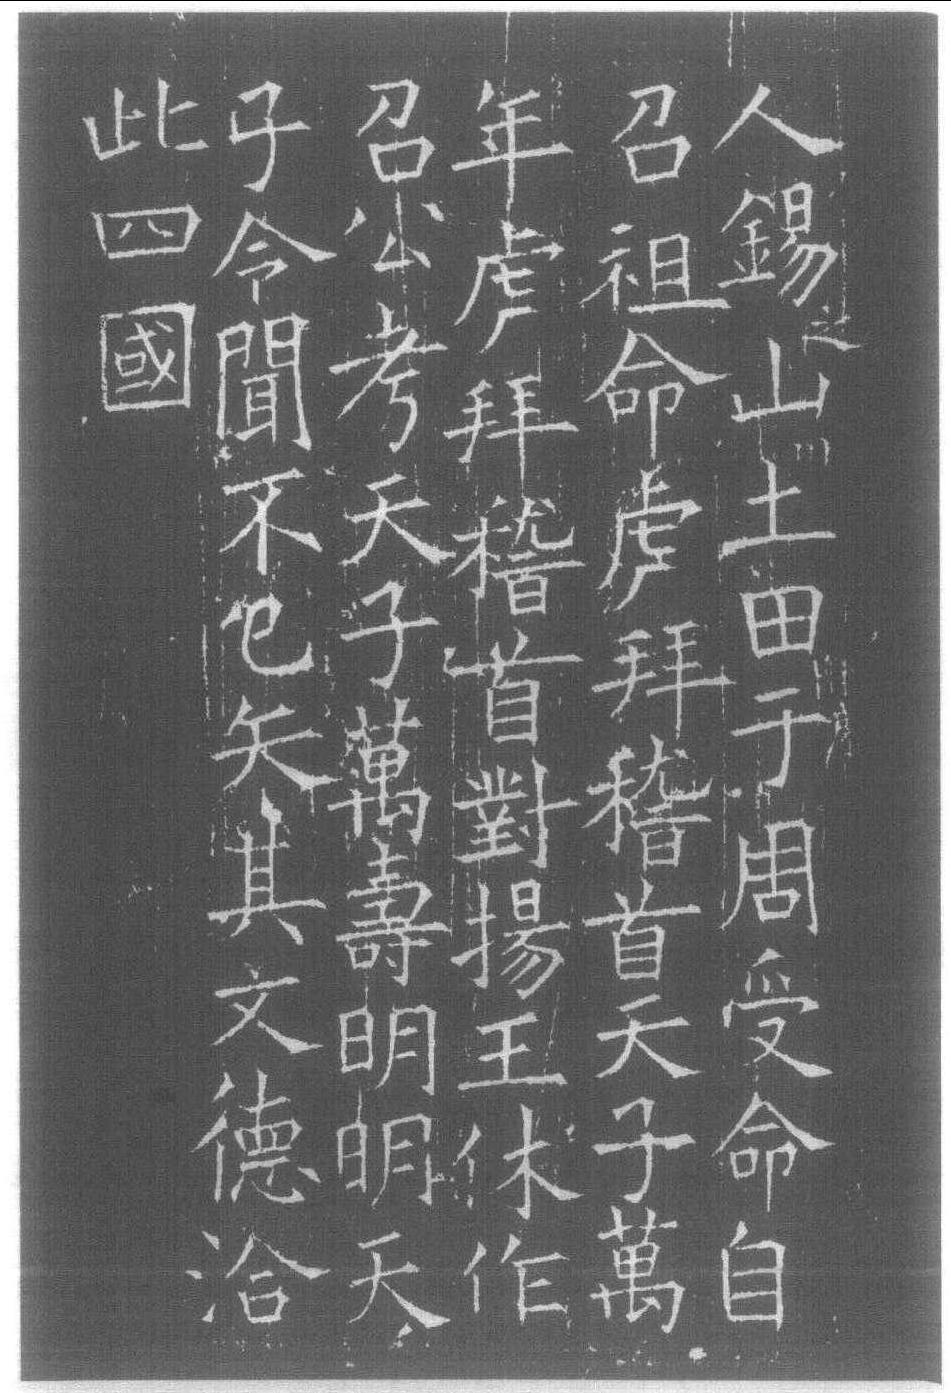 人錫之山土田于周受命自
召祖命虎拜稽首天子萬
年虎拜稽首對揚王休作
召公考天子萬壽明明天
子令聞不已矢其文德洽
此四國